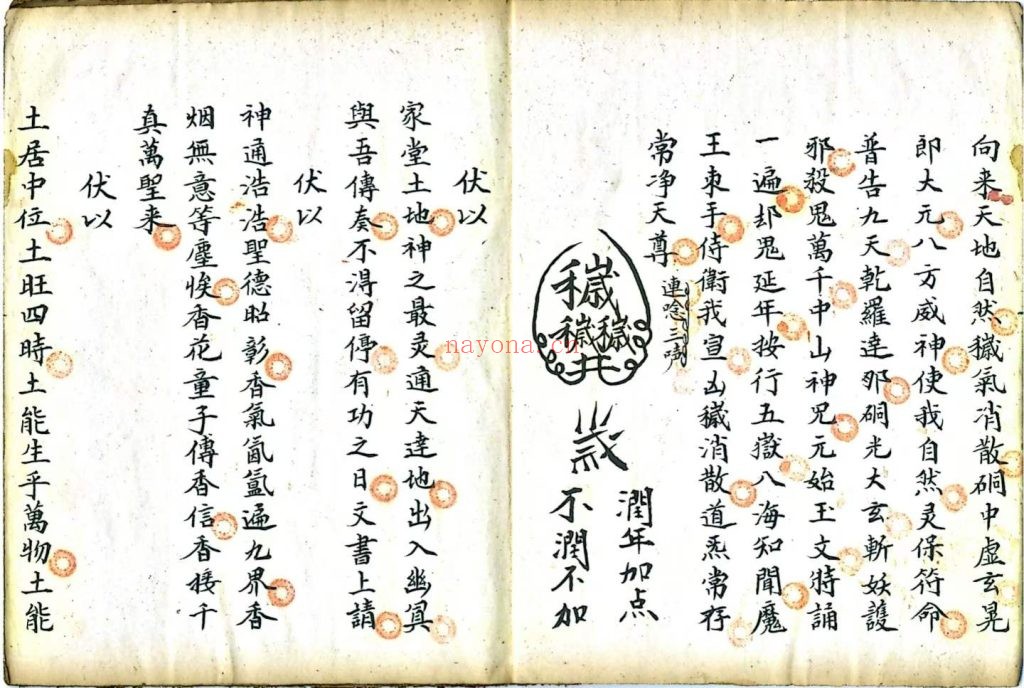 向来天地自然穢氣消散硐中虚玄晃
郎大元八方威神使我自然灵保符命
普告九天乾羅逹那硐光大玄斬妖護
邪殺鬼萬千中山神咒元始玉文時誦
一遍却鬼延年按行五嶽八海知聞魔
王束手侍衛我宣凶穢消散道炁常存
常净天尊
連唸三嗎
穢
穢穢
井
潤年加点
不潤不加
伏以
家堂土地神之最灵通天逹地出入幽冥
與吾傳奏不淂留停有功之日文書上請
伏以
神通浩浩聖德昭彰香氣氤氲遍九界香
烟無意等塵埃香花童子傳香信香接千
真萬聖来
伏以
土居中位土旺四時土能生乎萬物土能
nayona.cn